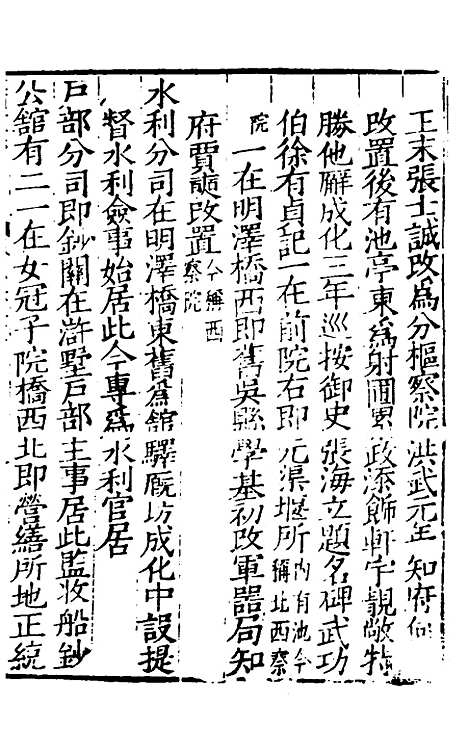 王末張士誠改為分樞察院洪武元年知府何
改置後有池亭東為射圃累政添飾軒宇靚敞特
勝他廨成化三年巡按御史張海立題名碑武功
伯徐有貞記一在前院右即元渠堰所内有池今稱北西察
院一在明澤橋西即舊吳縣學基初改軍噐局知
府賈奭改置今稱西察院
水利分司在明澤橋東舊為舘驛厩坊成化中設提
督水利僉事始居此今專為水利官居
戸部分司即鈔關在滸墅戸部主事居此監收船鈔
公舘有二一在女冠子院橋西北即營繕所地正統